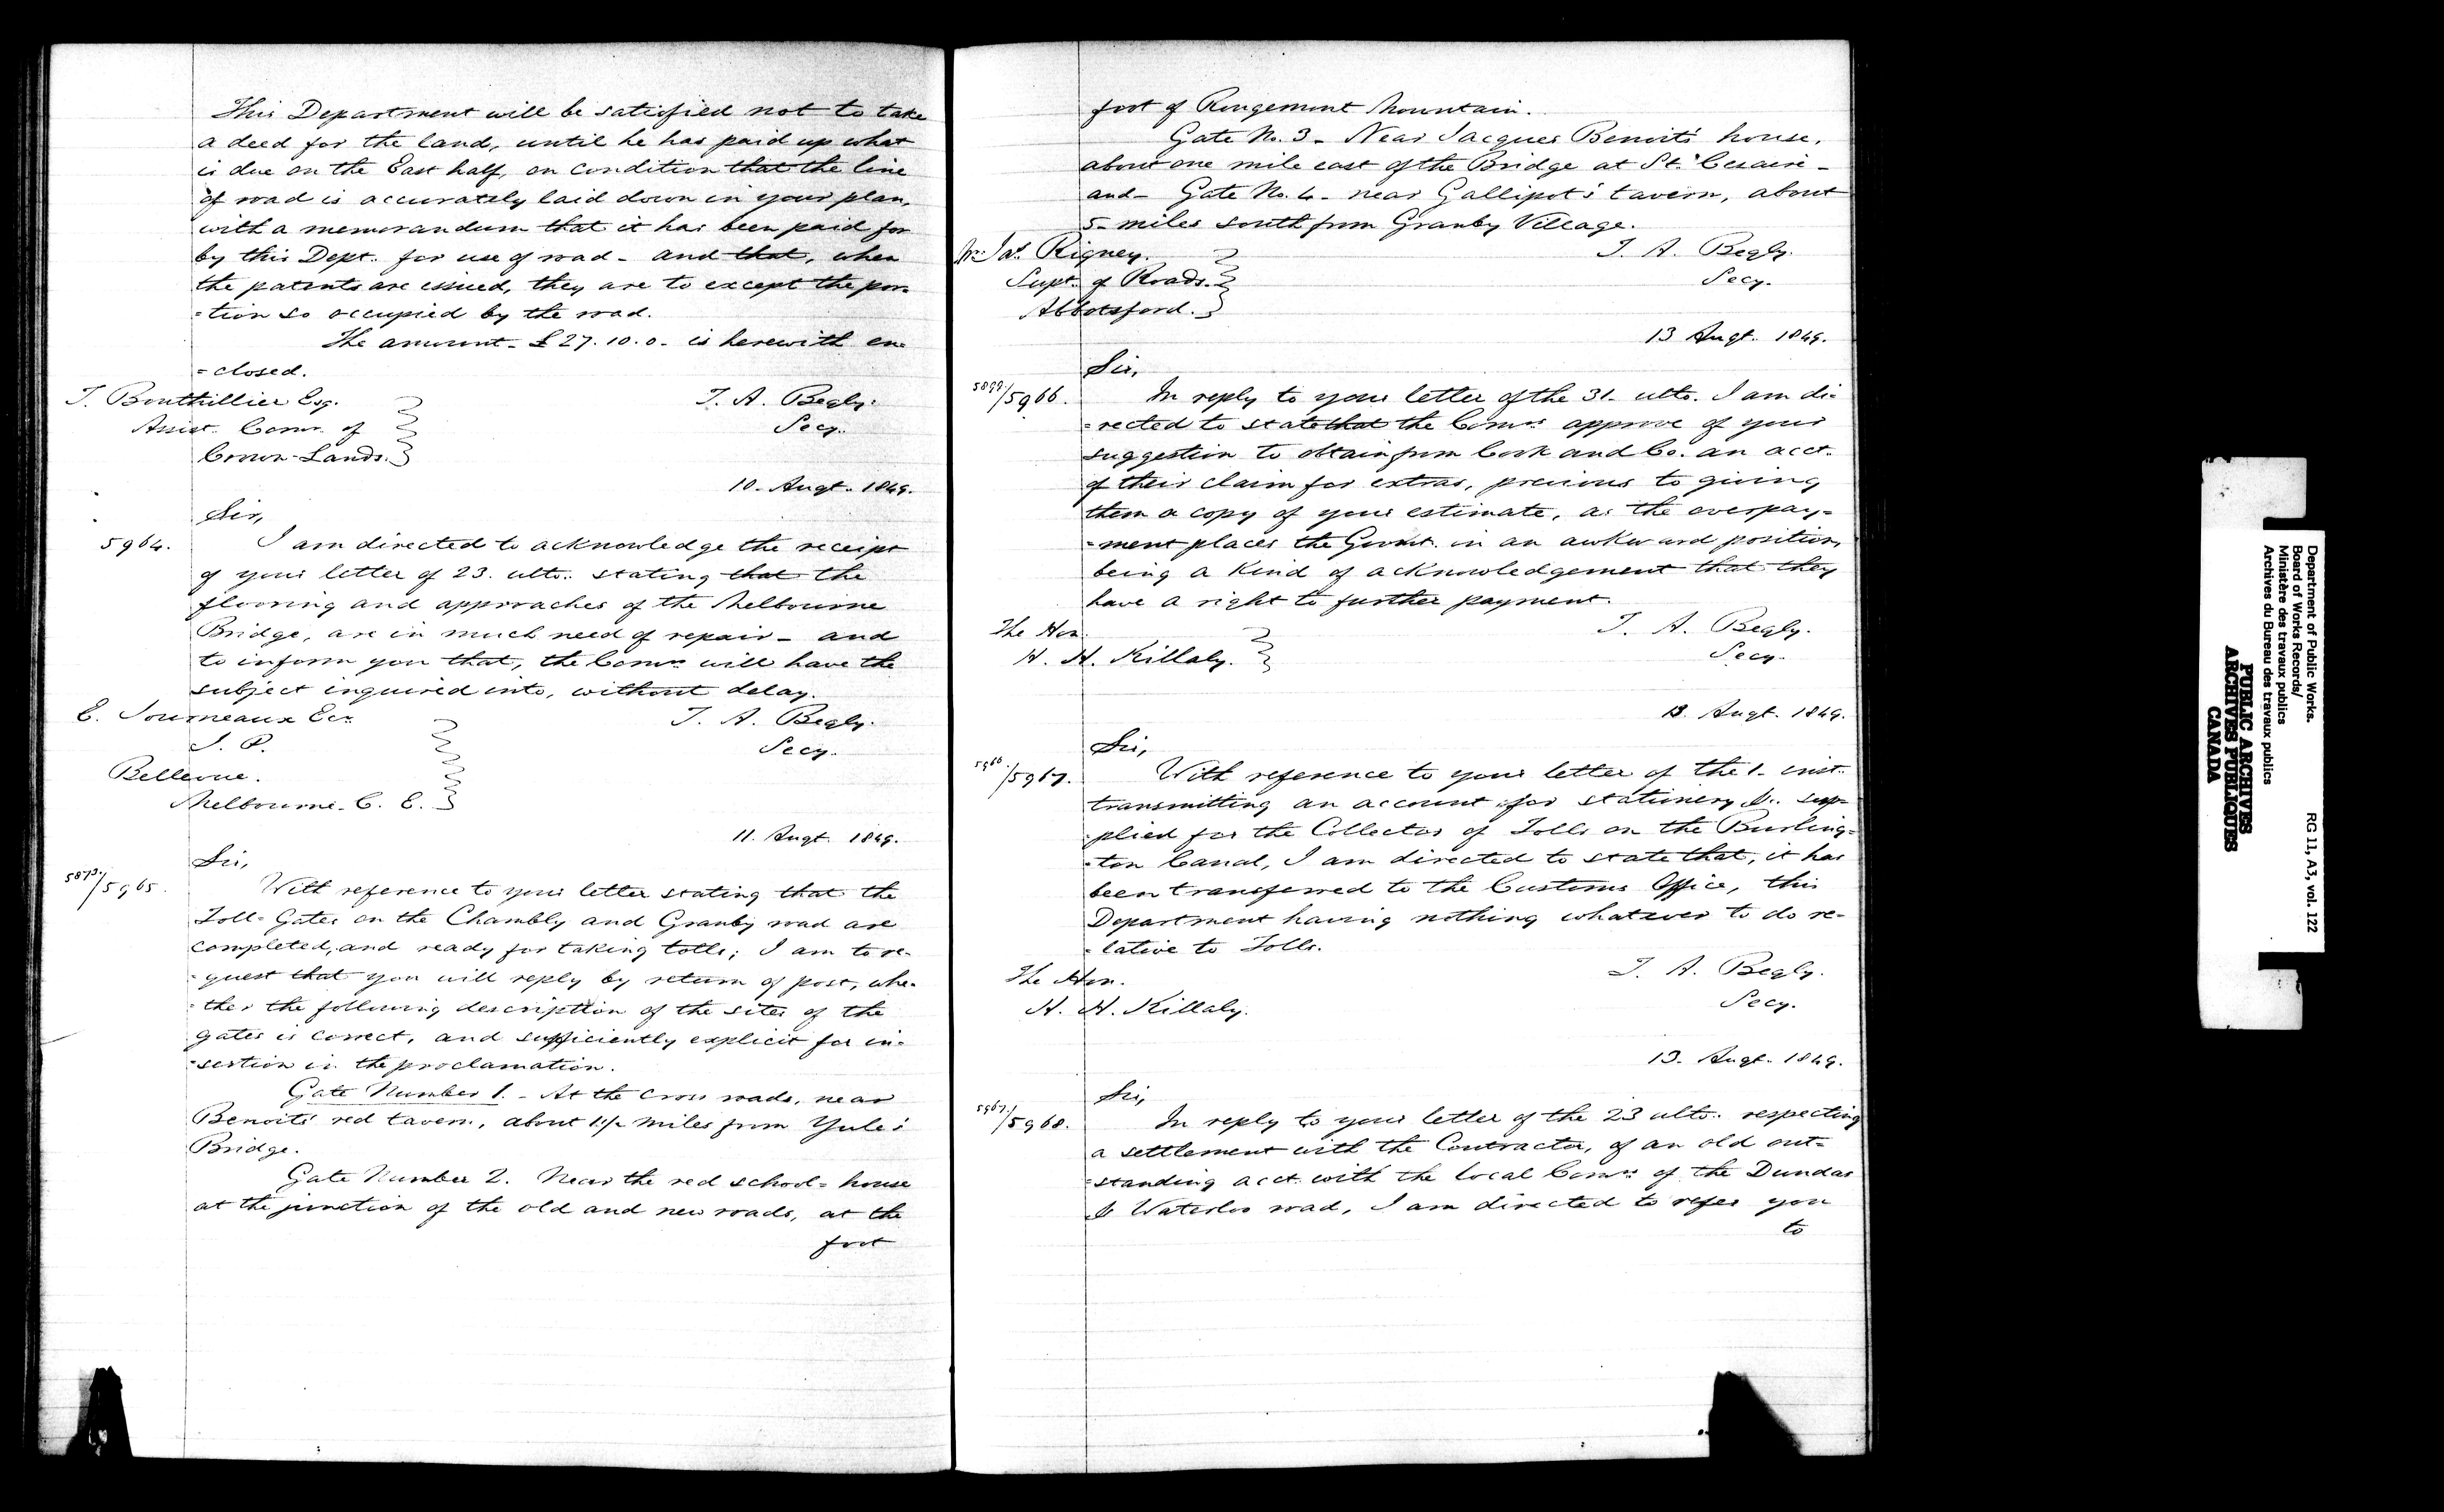 This Department will be satisfied not to take
a deed for the land, until he has paid up what
is due on the East half, on condition that the line
of road is accurately laid down in your plan,
with a memorandum that it has been paid for
by this Dept. for use of road - and that, when
the patents are issued, they are to except the por-
=tion so occupied by the road.
The amount - £27.10.0 - is herewith en=
=closed.
T. Bouthillier Esq.
Assist. Comr. of
Crown-Lands.
T. A. Begly.
Secy.
10. Augt. 1849.
Sir,
5964.
I am directed to acknowledge the receipt
of your letter of 23. ulto. stating that the
flooring and approaches of the Melbourne
Bridge, are in much need of repair - and
to inform you that, the Comrs. will have the
subject inquired into, without delay.
E. Journeaux Esr.
J. P.
Bellevue.
Melbourne. C. E.
T. A. Begly.
Secy.
11. Augt. 1849.
Sir,
5873/5965.
With reference to your letter stating that the
Toll-Gates on the Chambly and Granby road are
completed, and ready for taking tolls; I am to re-
=quest that you will reply by return of post, whe-
=ther the following description of the sites of the
gates is correct, and sufficiently explicit for in-
=sertion in the proclamation.
Gate Number 1. - At the cross roads, near
Benoit's red tavern, about 1½ miles from Yule's
Bridge.
Gate Number 2. Near the red school=house
at the junction of the old and new roads, at the
foot
foot of Rougemont Mountain.
Gate No. 3 - Near Jacques Benoit's house,
about one mile east of the Bridge at St. Cesaire -
and - Gate No. 4 - near Gallipot's tavern, about
5 - miles south from Granby Village.
Mr. Jas. Rigney.
Supt. of Roads.
Abbotsford.
T. A. Begly.
Secy.
13 Augt. 1849.
Sir,
5899/5966.
In reply to your letter of the 31 - ulto. I am di-
=rected to state that the Comrs. approve of your
suggestion to obtain from Cook and Co. an acct.
of their claim for extras, previous to giving
them a copy of your estimate, as the overpay=
=ment places the Govmt. in an awkward position,
being a kind of acknowledgement that they
have a right to further payment.
The Hon.
H. H. Killaly.
T. A. Begly.
Secy.
13. Augt. 1849.
Sir,
5966/5967.
With reference to your letter of the 1 - inst.
transmitting an account for stationery &c. sup=
=plied for the Collector of Tolls on the Burling=
=ton Canal, I am directed to state that, it has
been transferred to the Customs Office, this
Department having nothing whatever to do re-
=lative to Tolls.
The Hon.
H. H. Killaly.
T. A. Begly.
Secy.
13. Augt. 1849.
Sir,
5967/5968.
In reply to your letter of the 23 ulto. respecting
a settlement with the Contractor, of an old out=
=standing acct. with the local Comrs. of the Dundas
& Waterloo road, I am directed to refer you
to
Department of Public Works.
Board of Works Records/
Ministère des travaux publics
Archives du Bureau des travaux publics
RG 11, A3, vol. 122
PUBLIC ARCHIVES
ARCHIVES PUBLIQUES
CANADA